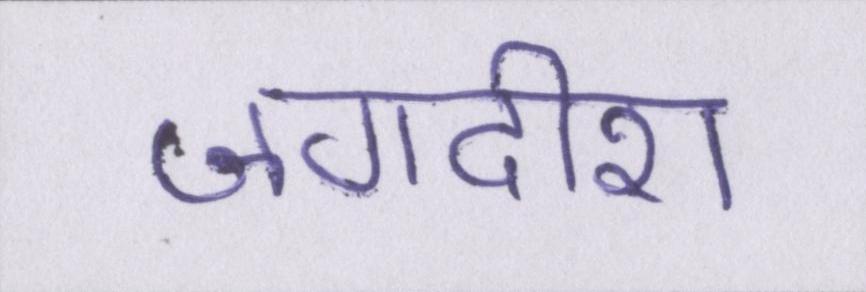 जगदीश